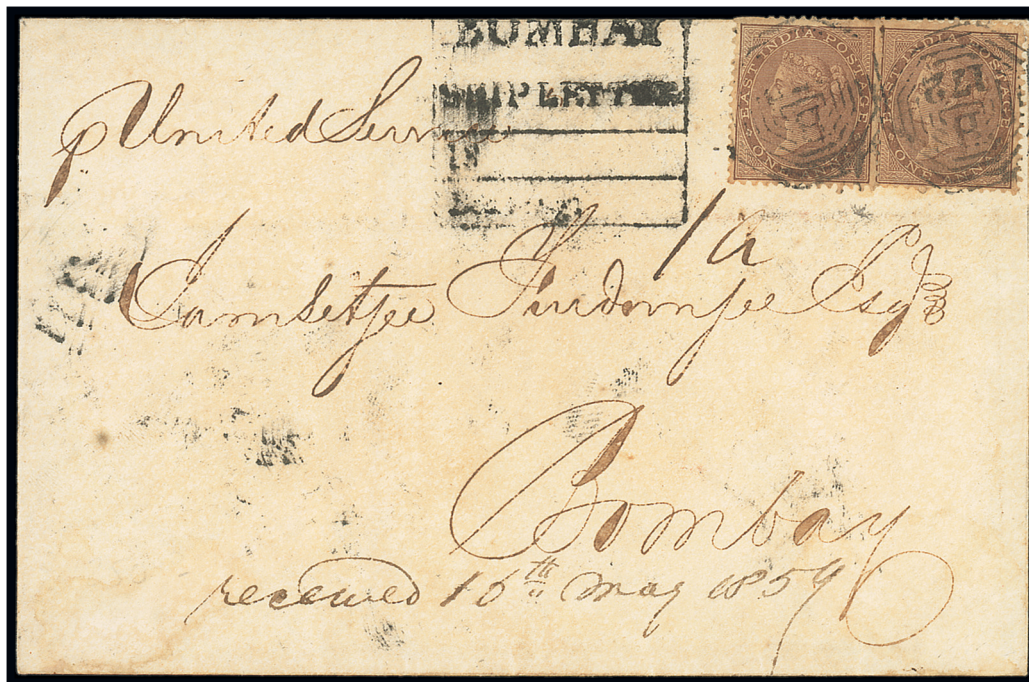 BOMBAY
SHIP LETTER
EAST INDIA POSTAGE
ONE ANNA
EAST INDIA POSTAGE
ONE ANNA
p United
1a
Jamsetjee Esqr
Bombay
received 16th may 1859